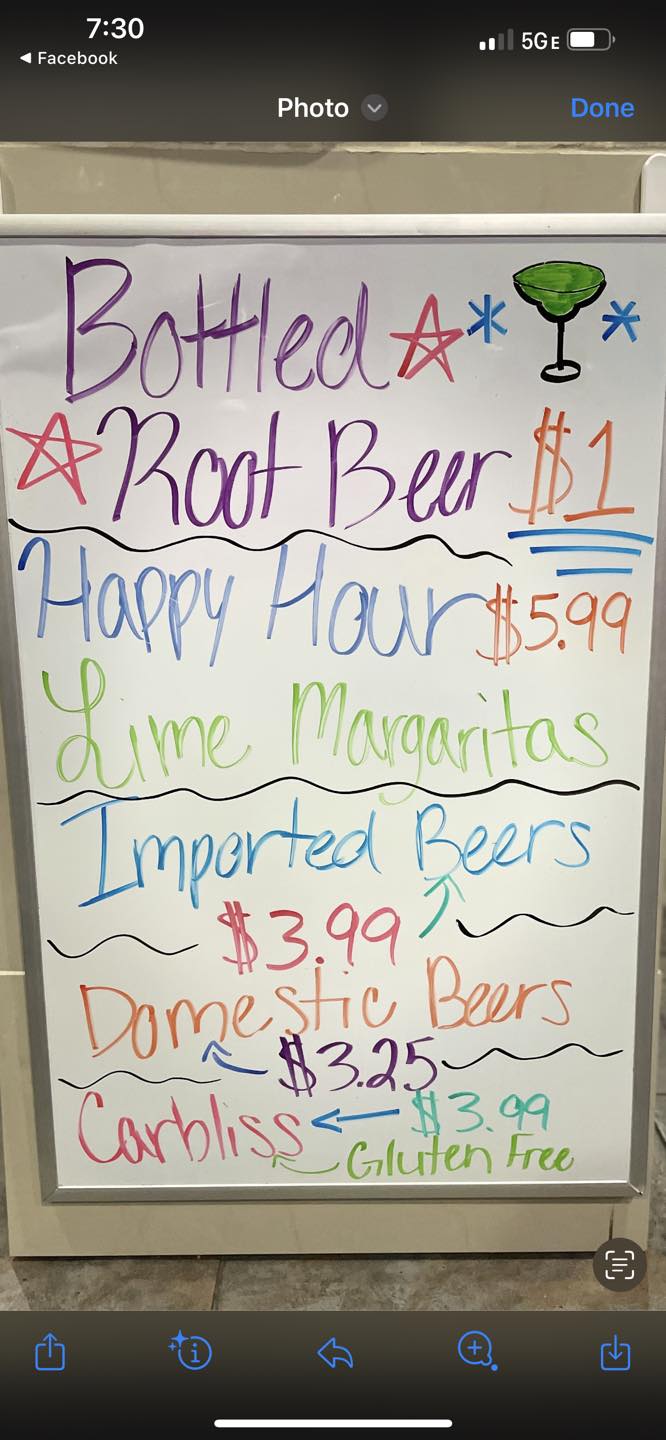 7:30
5GE
◀ Facebook
Photo
Done
Bottled
Root Beer $1
Happy Hour $5.99
Lime Margaritas
Imported Beers
$3.99
Domestic Beers
$3.25
Carbliss $3.99
Gluten Free